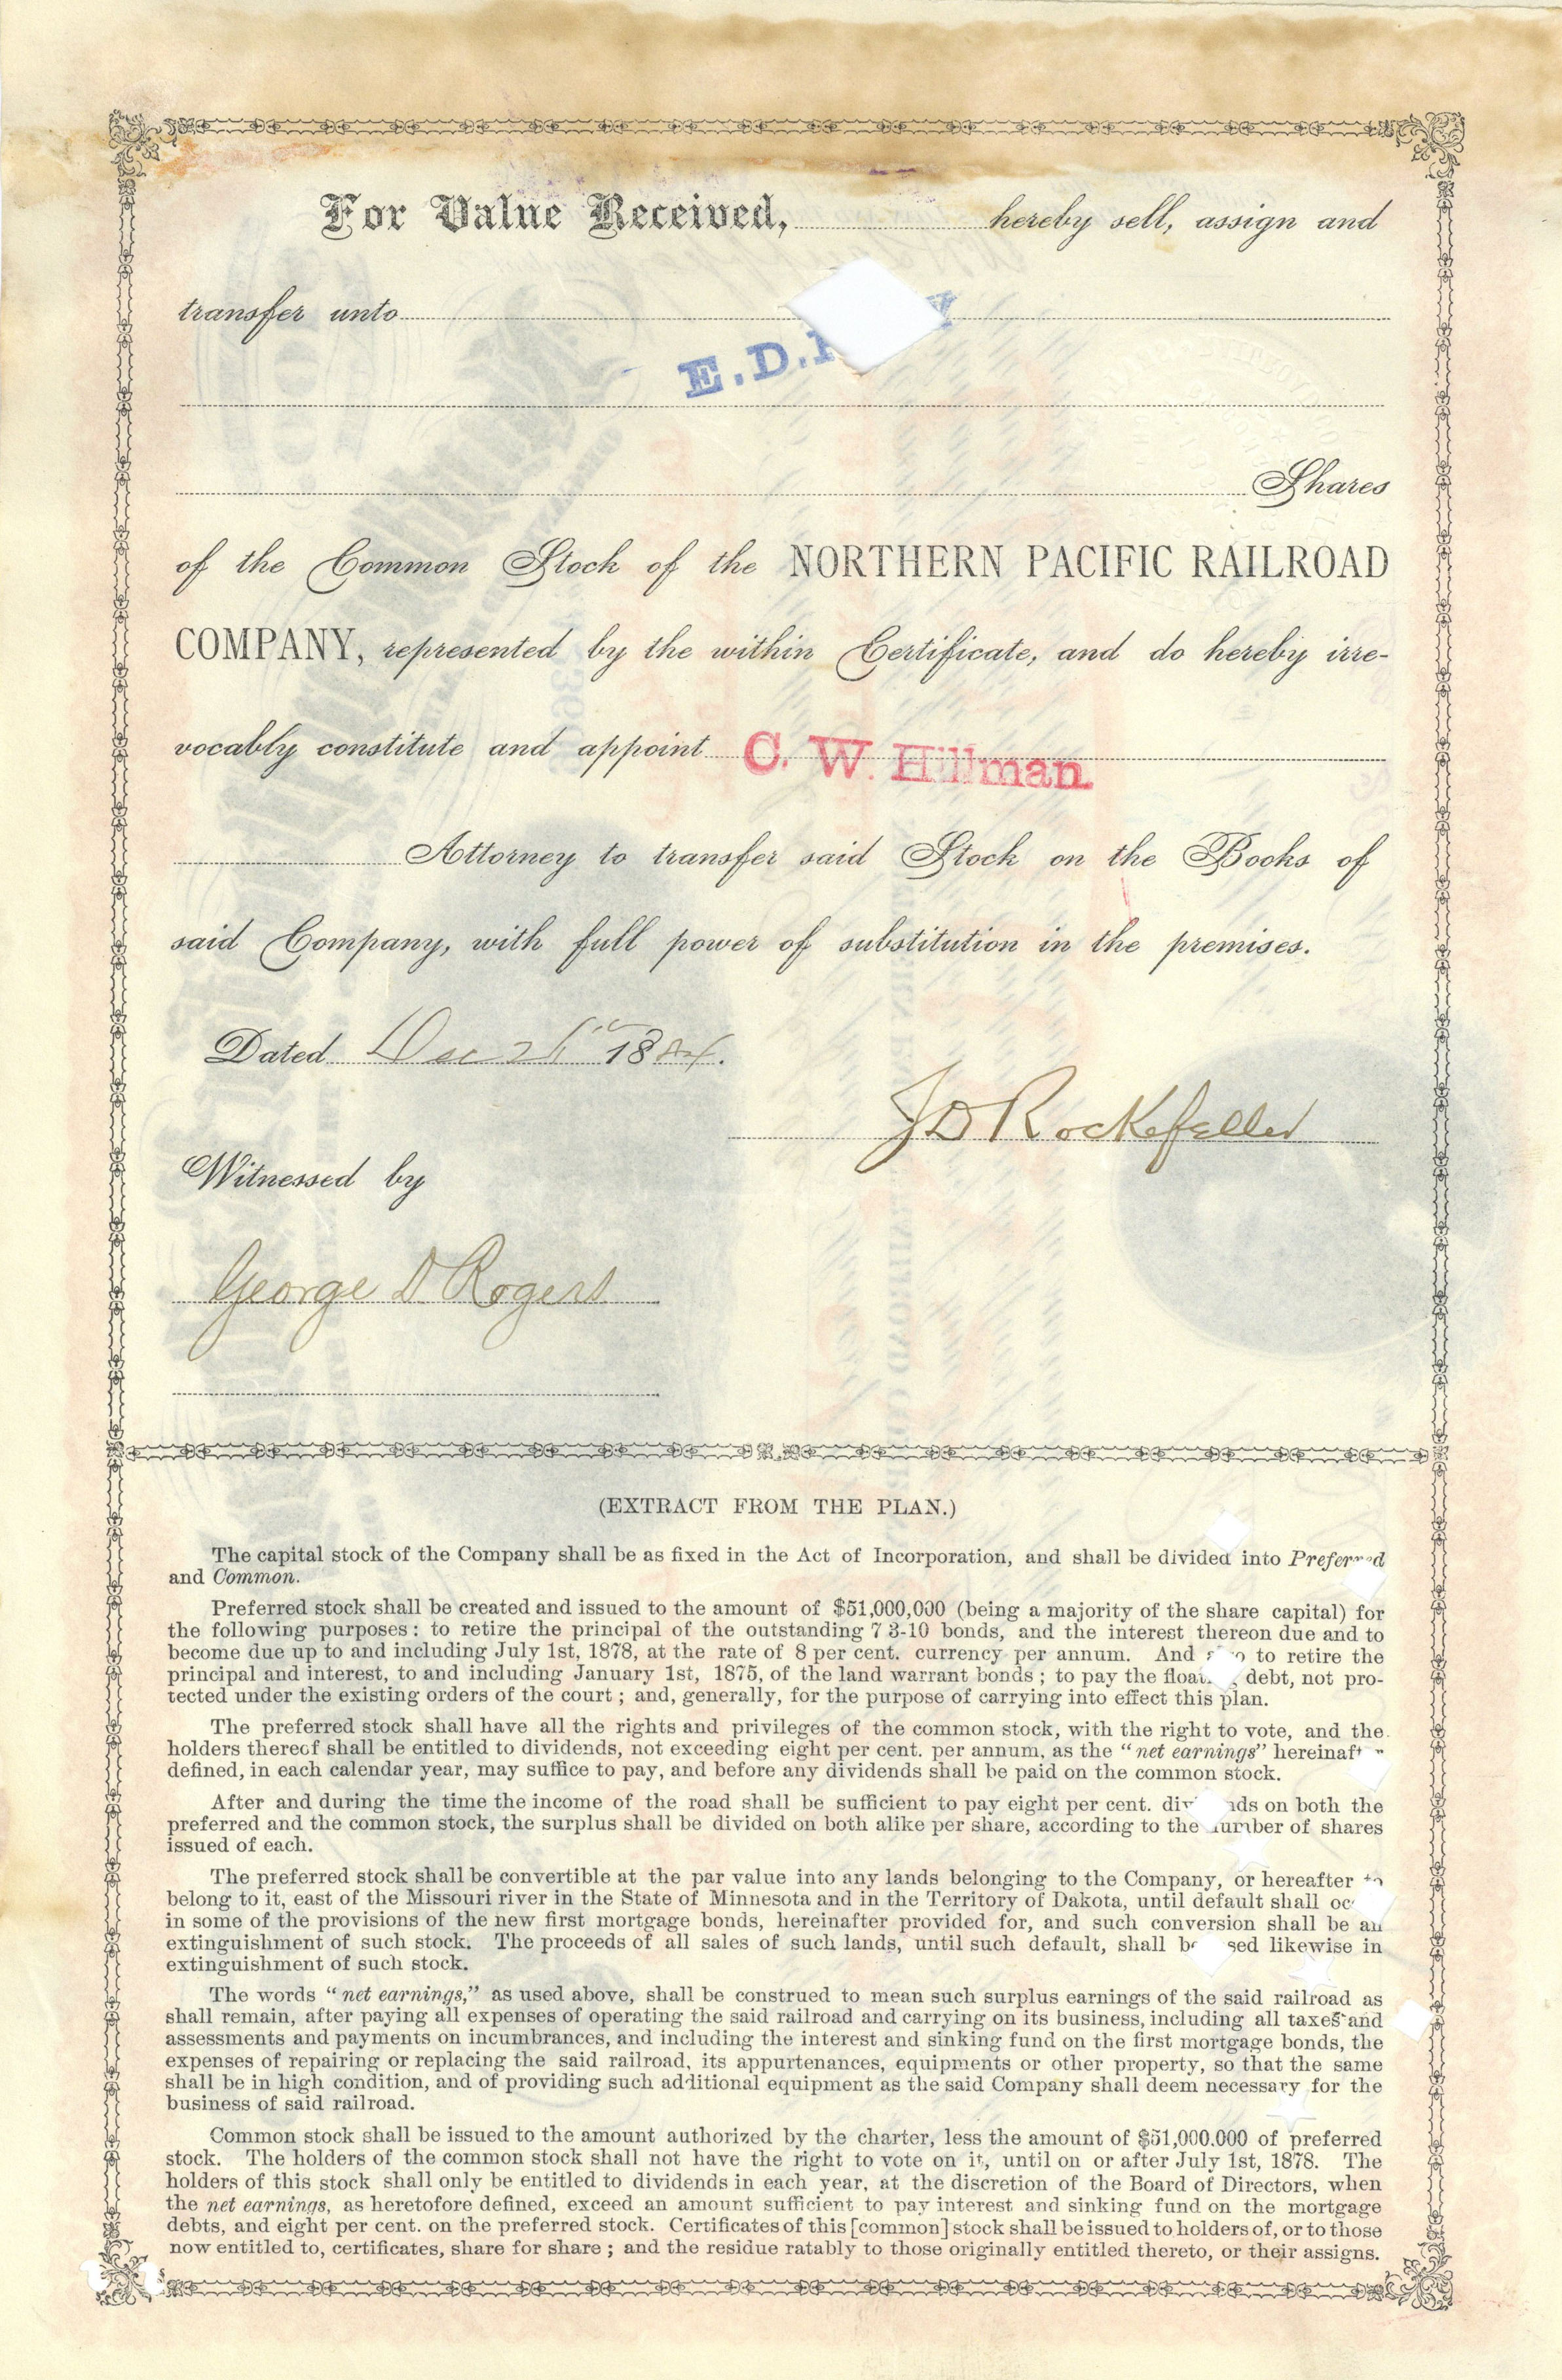 For Value Received, hereby sell, assign and
transfer unto
E.D.
Shares
of the Common Stock of the NORTHERN PACIFIC RAILROAD
COMPANY, represented by the within Certificate, and do hereby irre-
vocably constitute and appoint C. W. Hillman.
Attorney to transfer said Stock on the Books of
said Company, with full power of substitution in the premises.
Dated Dec 1884.
J D Rockefeller
Witnessed by
George D Rogers
(EXTRACT FROM THE PLAN.)
The capital stock of the Company shall be as fixed in the Act of Incorporation, and shall be divided into Preferred
and Common.
Preferred stock shall be created and issued to the amount of $51,000,000 (being a majority of the share capital) for
the following purposes : to retire the principal of the outstanding 7 3-10 bonds, and the interest thereon due and to
become due up to and including July 1st, 1878, at the rate of 8 per cent. currency per annum. And to retire the
principal and interest, to and including January 1st, 1875, of the land warrant bonds ; to pay the debt, not pro-
tected under the existing orders of the court ; and, generally, for the purpose of carrying into effect this plan.
The preferred stock shall have all the rights and privileges of the common stock, with the right to vote, and the
holders thereof shall be entitled to dividends, not exceeding eight per cent. per annum, as the "net earnings" hereinafter
defined, in each calendar year, may suffice to pay, and before any dividends shall be paid on the common stock.
After and during the time the income of the road shall be sufficient to pay eight per cent. on both the
preferred and the common stock, the surplus shall be divided on both alike per share, according to the number of shares
issued of each.
The preferred stock shall be convertible at the par value into any lands belonging to the Company, or hereafter to
belong to it, east of the Missouri river in the State of Minnesota and in the Territory of Dakota, until default shall
in some of the provisions of the new first mortgage bonds, hereinafter provided for, and such conversion shall be an
extinguishment of such stock. The proceeds of all sales of such lands, until such default, shall likewise in
extinguishment of such stock.
The words "net earnings," as used above, shall be construed to mean such surplus earnings of the said railroad as
shall remain, after paying all expenses of operating the said railroad and carrying on its business, including all taxes and
assessments and payments on incumbrances, and including the interest and sinking fund on the first mortgage bonds, the
expenses of repairing or replacing the said railroad, its appurtenances, equipments or other property, so that the same
shall be in high condition, and of providing such additional equipment as the said Company shall deem necessary for the
business of said railroad.
Common stock shall be issued to the amount authorized by the charter, less the amount of $51,000.000 of preferred
stock. The holders of the common stock shall not have the right to vote on it, until on or after July 1st, 1878. The
holders of this stock shall only be entitled to dividends in each year, at the discretion of the Board of Directors, when
the net earnings, as heretofore defined, exceed an amount sufficient to pay interest and sinking fund on the mortgage
debts, and eight per cent. on the preferred stock. Certificates of this [common] stock shall be issued to holders of, or to those
now entitled to, certificates, share for share ; and the residue ratably to those originally entitled thereto, or their assigns.